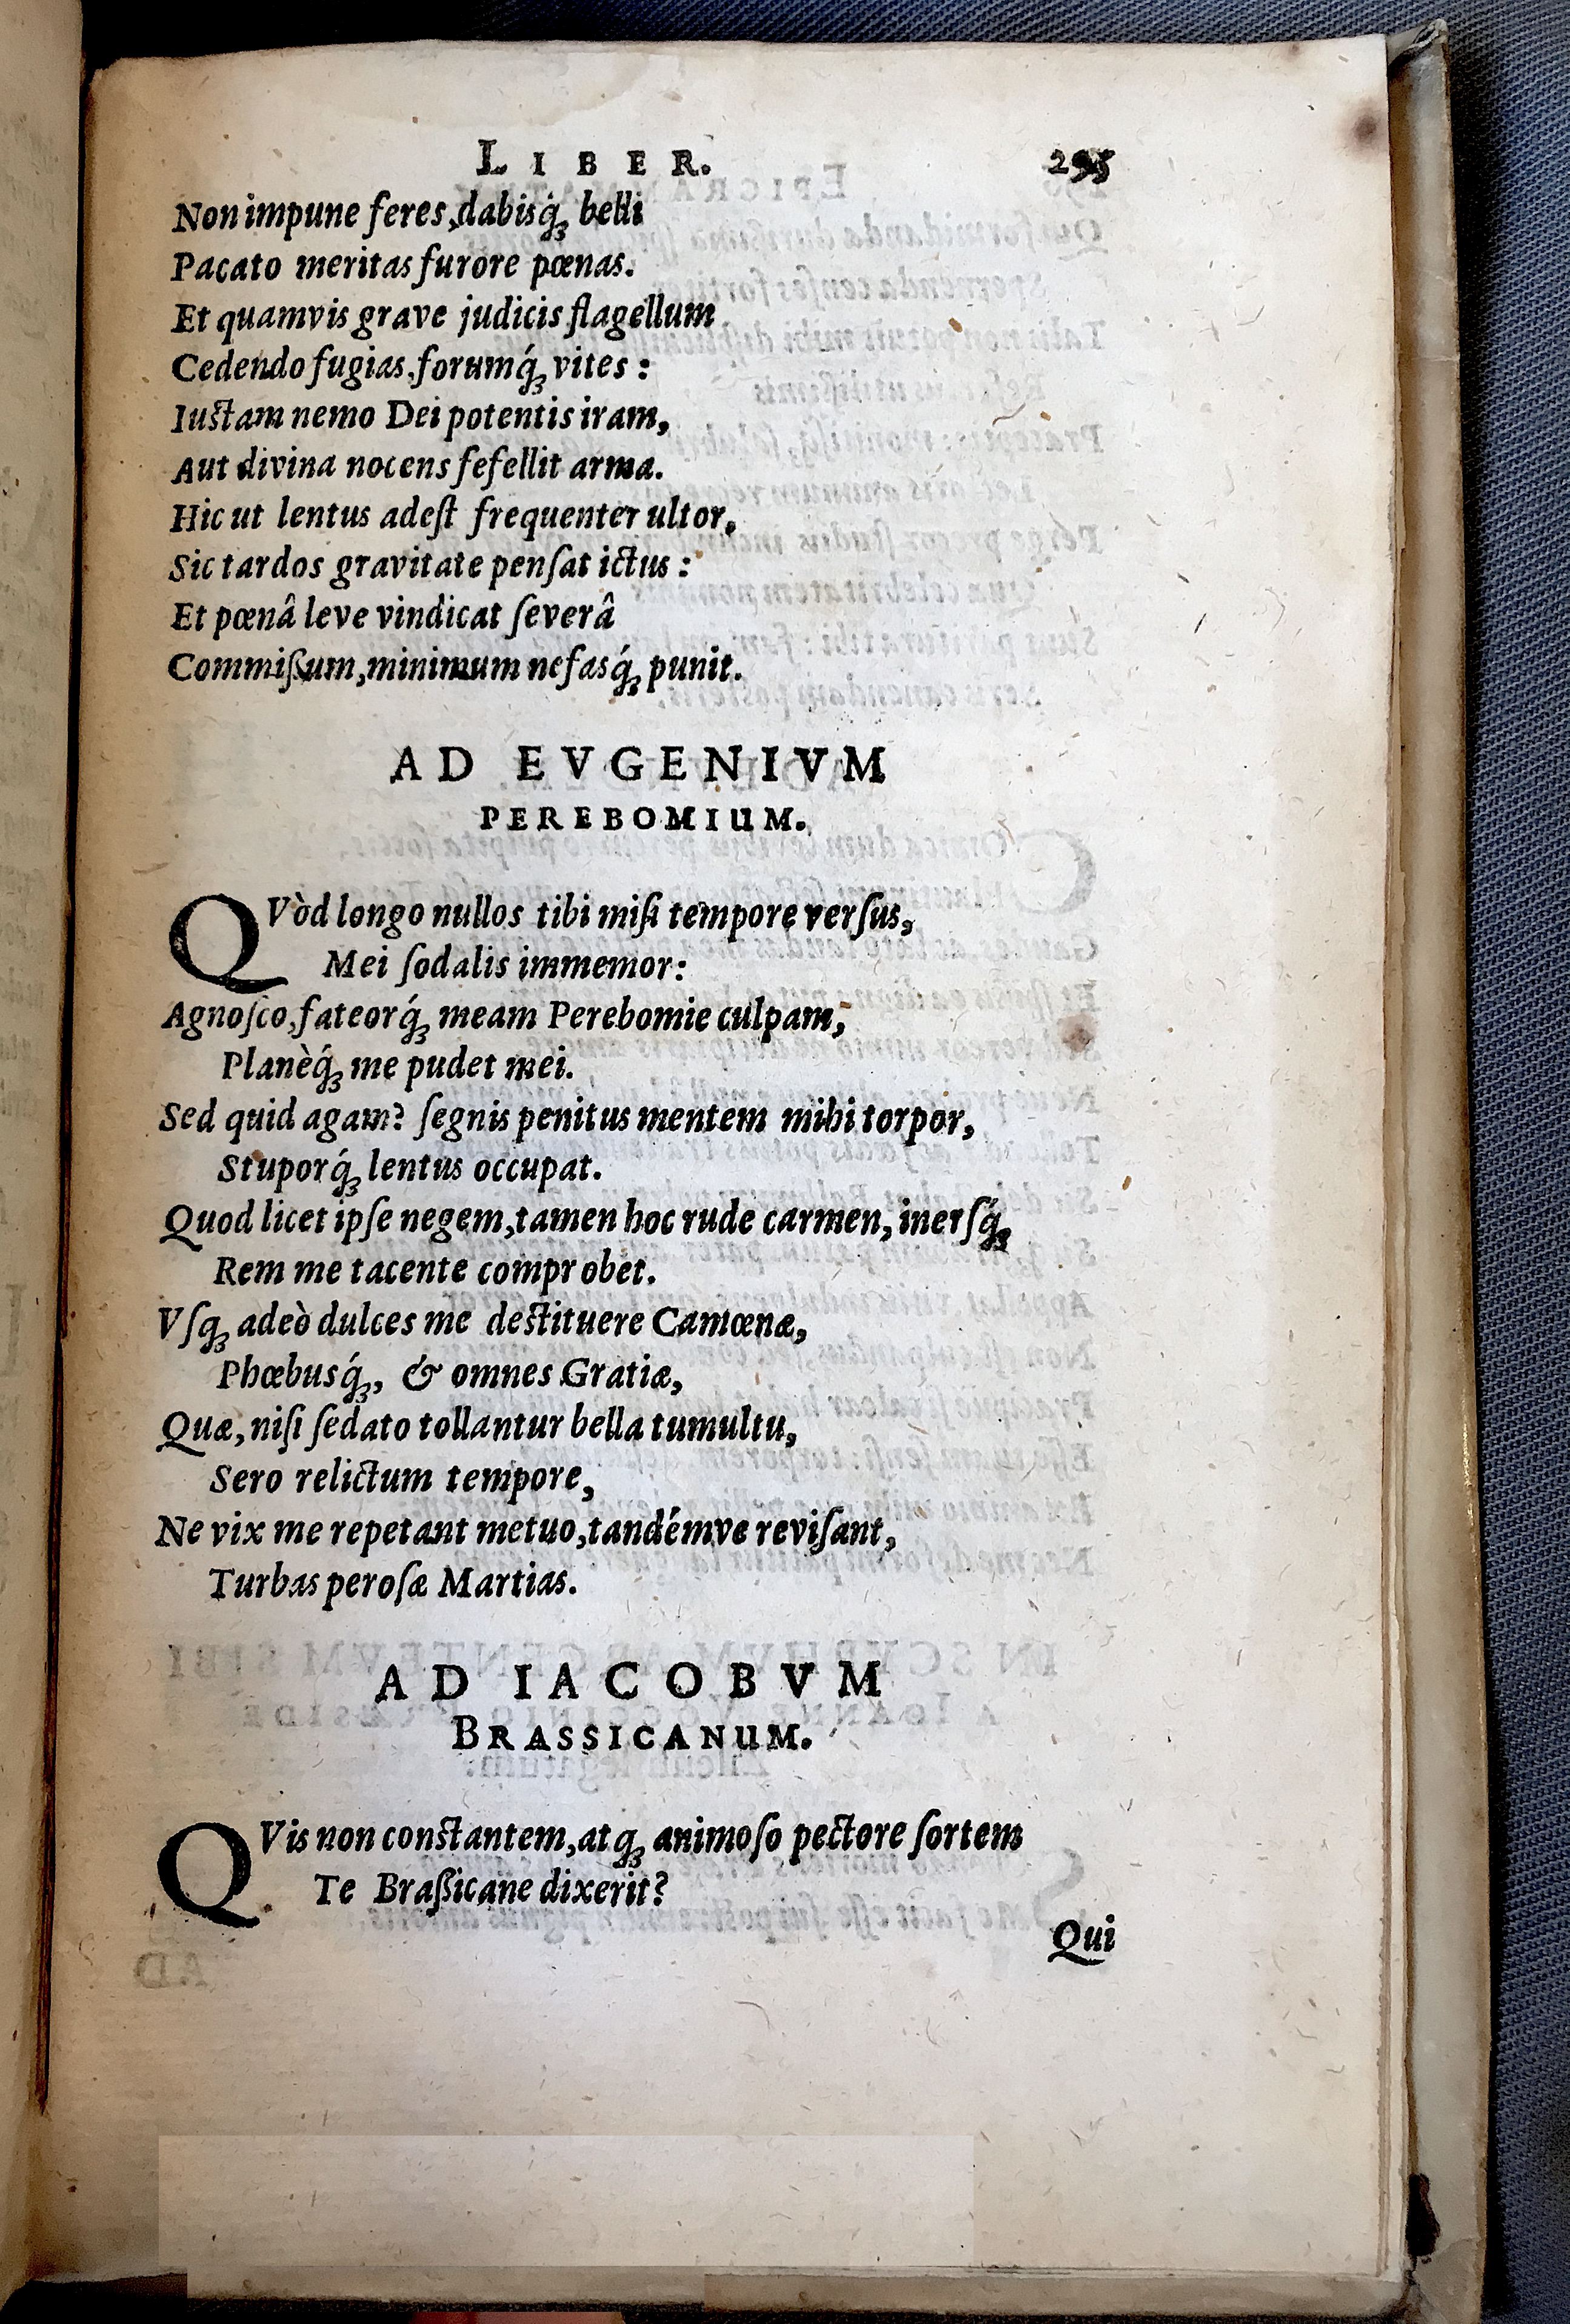 LIBER. 295
Non impune feres, dabisq́ꝫ belli
Pacato meritas furore pœnas.
Et quamvis grave judicis flagellum
Cedendo fugias, forumq́ꝫ vites :
Iustam nemo Dei potentis iram,
Aut divina nocens fefellit arma.
Hic ut lentus adest frequenter ultor,
Sic tardos gravitate penſat ictus :
Et pœnâ leve vindicat ſeverâ
Commiſſum, minimum nefasq́ꝫ punit.
AD EVGENIVM
PEREBOMIUM.
QVòd longo nullos tibi miſi tempore verſus,
Mei ſodalis immemor:
Agnoſco, fateorq́ꝫ meam Perebomie culpam,
Planèq́ꝫ me pudet mei.
Sed quid agam? ſegnis penitus mentem mihi torpor,
Stuporq́ꝫ lentus occupat.
Quod licet ipſe negem, tamen hoc rude carmen, inerſq́ꝫ
Rem me tacente comprobet.
Vſqꝫ adeò dulces me destituere Camœnæ,
Phœbusq́ꝫ, & omnes Gratiæ,
Quæ, niſi ſedato tollantur bella tumultu,
Sero relictum tempore,
Ne vix me repetant metuo, tandémve reviſant,
Turbas peroſæ Martias.
AD IACOBVM
BRASSICANUM.
QVis non constantem, atqꝫ animoſo pectore ſortem
Te Braſſicane dixerit?
Qui